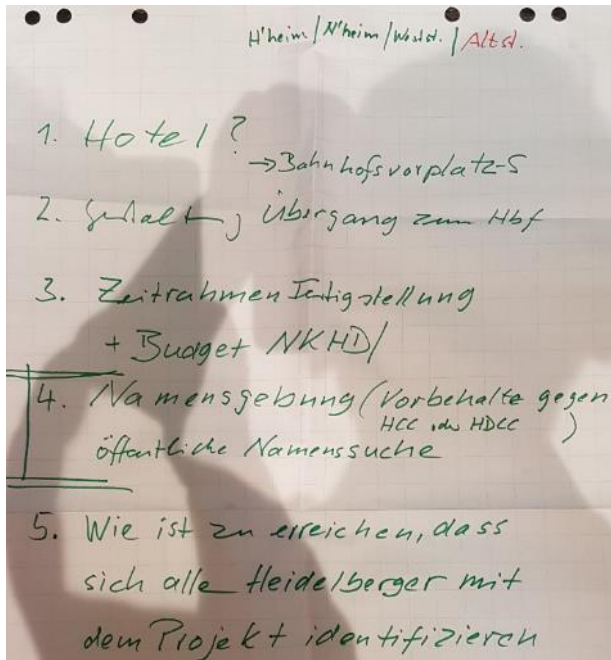 H'heim / N'heim / Westst. / Altst.
1. Hotel?
→ Bahnhofsvorplatz-S
2. Gestaltung Übergang zum Hbf
3. Zeitrahmen Fertigstellung
+ Budget NKHD/
4. Namensgebung (Vorbehalte gegen
HCC oder HDCC )
öffentliche Namenssuche
5. Wie ist zu erreichen, dass
sich alle Heidelberger mit
dem Projekt identifizieren